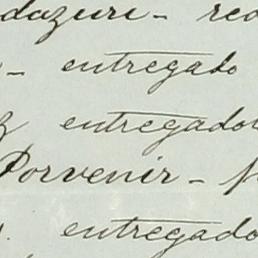 dazuri - rec
- entregado
entregado
Porvenir -
entregado